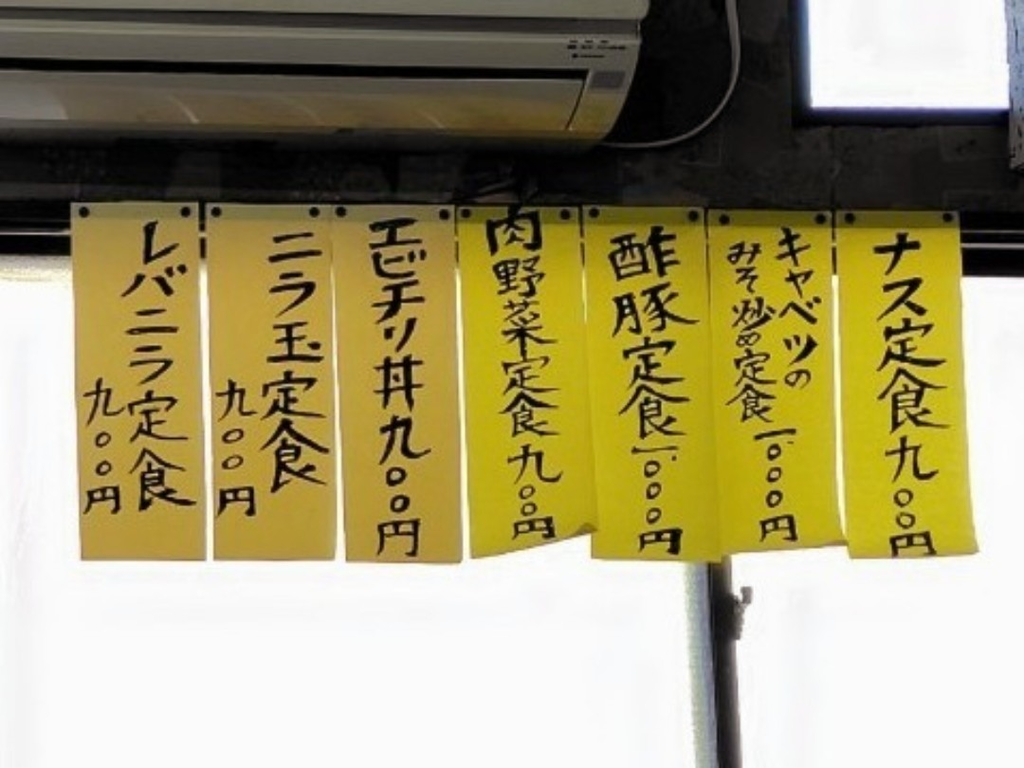 ナス定食九〇〇円
キャベツの
みそ炒め定食一、〇〇〇円
酢豚定食一、〇〇〇円
肉野菜定食九〇〇円
エビチリ丼九〇〇円
ニラ玉定食
九〇〇円
レバニラ定食
九〇〇円